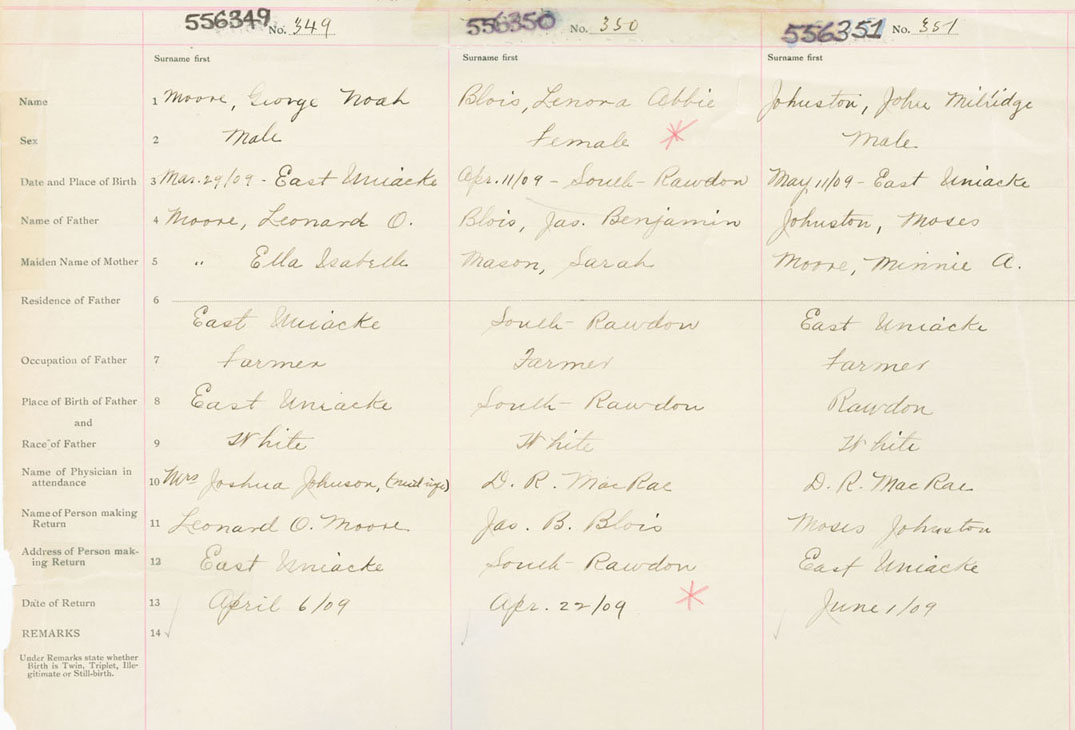 556349 No. 349 556350 No. 350 556351 No. 351
Surname first Surname first Surname first
Name 1 Moore, George Noah Blois, Lenora Abbie Johnston, John Milridge
Sex 2 Male Female Male
Date and Place of Birth 3 Mar. 29/09 - East Uniacke Apr. 11/09 - South Rawdon May 11/09 - East Uniacke
Name of Father 4 Moore, Leonard O. Blois, Jas. Benjamin Johnston, Moses
Maiden Name of Mother 5 " Ella Isabelle Mason, Sarah Moore, Minnie A.
Residence of Father 6
East Uniacke South Rawdon East Uniacke
Occupation of Father 7 Farmer Farmer Farmer
Place of Birth of Father 8 East Uniacke South Rawdon Rawdon
and
Race of Father 9 White White White
Name of Physician in
attendance 10 Mrs Joshua Johnson, (midwife) D. R. MacRae D. R. MacRae
Name of Person making
Return 11 Leonard O. Moore Jas. B. Blois Moses Johnston
Address of Person mak-
ing Return 12 East Uniacke South Rawdon East Uniacke
Date of Return 13 April 6/09 Apr. 22/09 June 1/09
REMARKS 14
Under Remarks state whether
Birth is Twin, Triplet, Ille-
gitimate or Still-birth.